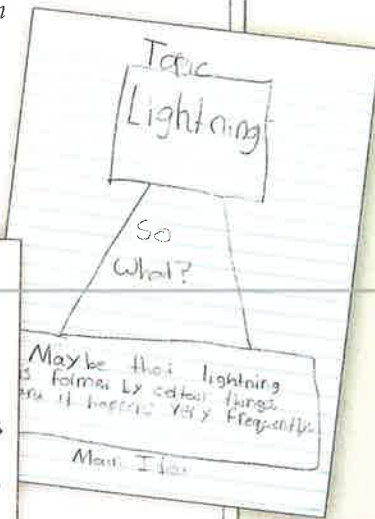 Topic
Lightning
So
What?
Maybe that lightning
is formed by certain things
and it happens very frequently
Main Idea